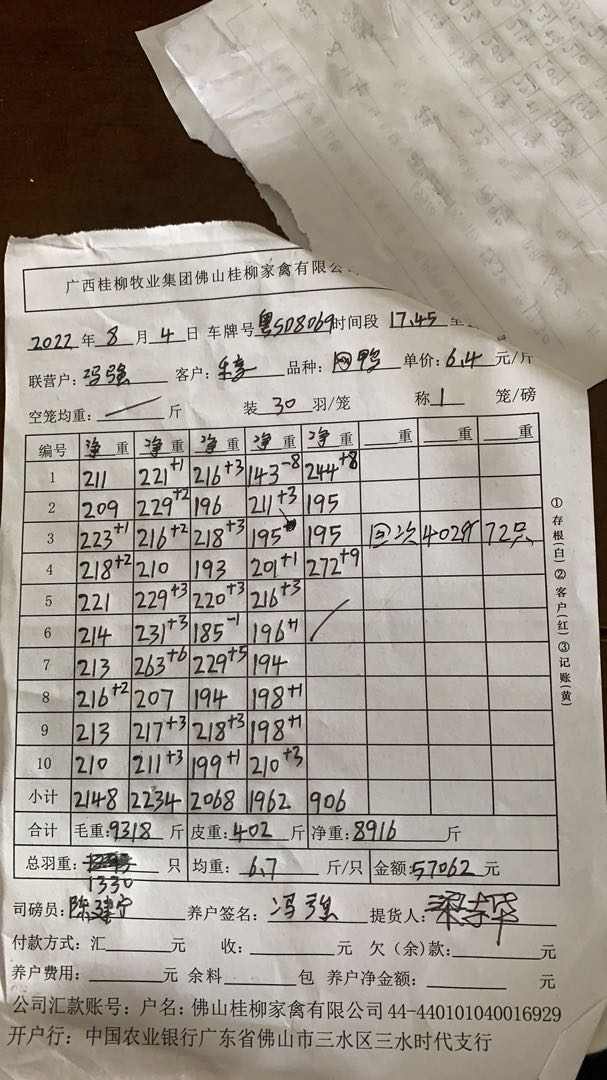 广西桂柳牧业集团佛山桂柳家禽有限公
2022 年 8 月 4 日 车牌号 粤SD8069 时间段 17.45 至
联营户: 冯强 客户: 品种: 鸭 单价: 6.4 元/斤
空笼均重: 斤 装 30 羽/笼 称 1 笼/磅
编号 净重 净重 净重 净重 净重 重 重 重
1 211 221+1 216+3 143-8 244+8
2 209 229+2 196 211+3 195
3 223+1 216+2 218+3 195 195 回次 402斤 72只
4 218+2 210 193 201+1 272+9
5 221 229+3 220+3 216+3
6 214 231+3 185-1 196+1
7 213 263+6 229+5 194
8 216+2 207 194 198+1
9 213 217+3 218+3 198+1
10 210 211+3 199+1 210+3
小计 2148 2234 2068 1962 906
合计 毛重:9318 斤 皮重:402 斤 净重:8916 斤
总羽重: 1330 只 均重: 6.7 斤/只 金额:57062 元
司磅员: 陈建宁 养户签名: 冯强 提货人:
付款方式: 汇 元 收: 元 欠(余)款: 元
养户费用: 元 余料 包 养户净金额: 元
公司汇款账号: 户名: 佛山桂柳家禽有限公司 44-440101040016929
开户行: 中国农业银行广东省佛山市三水区三水时代支行
①存根(白)②客户(红)③记账(黄)